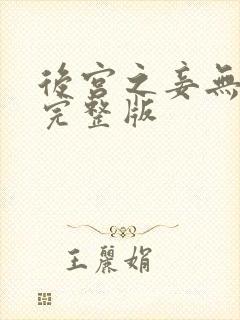 後宮之妾無
完整版
王麗娟